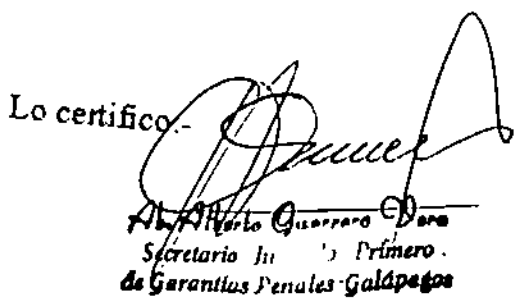 Lo certifico.-
Ab. Alberto Guerrero
Secretario Primero.
de Garantías Penales-Galápagos